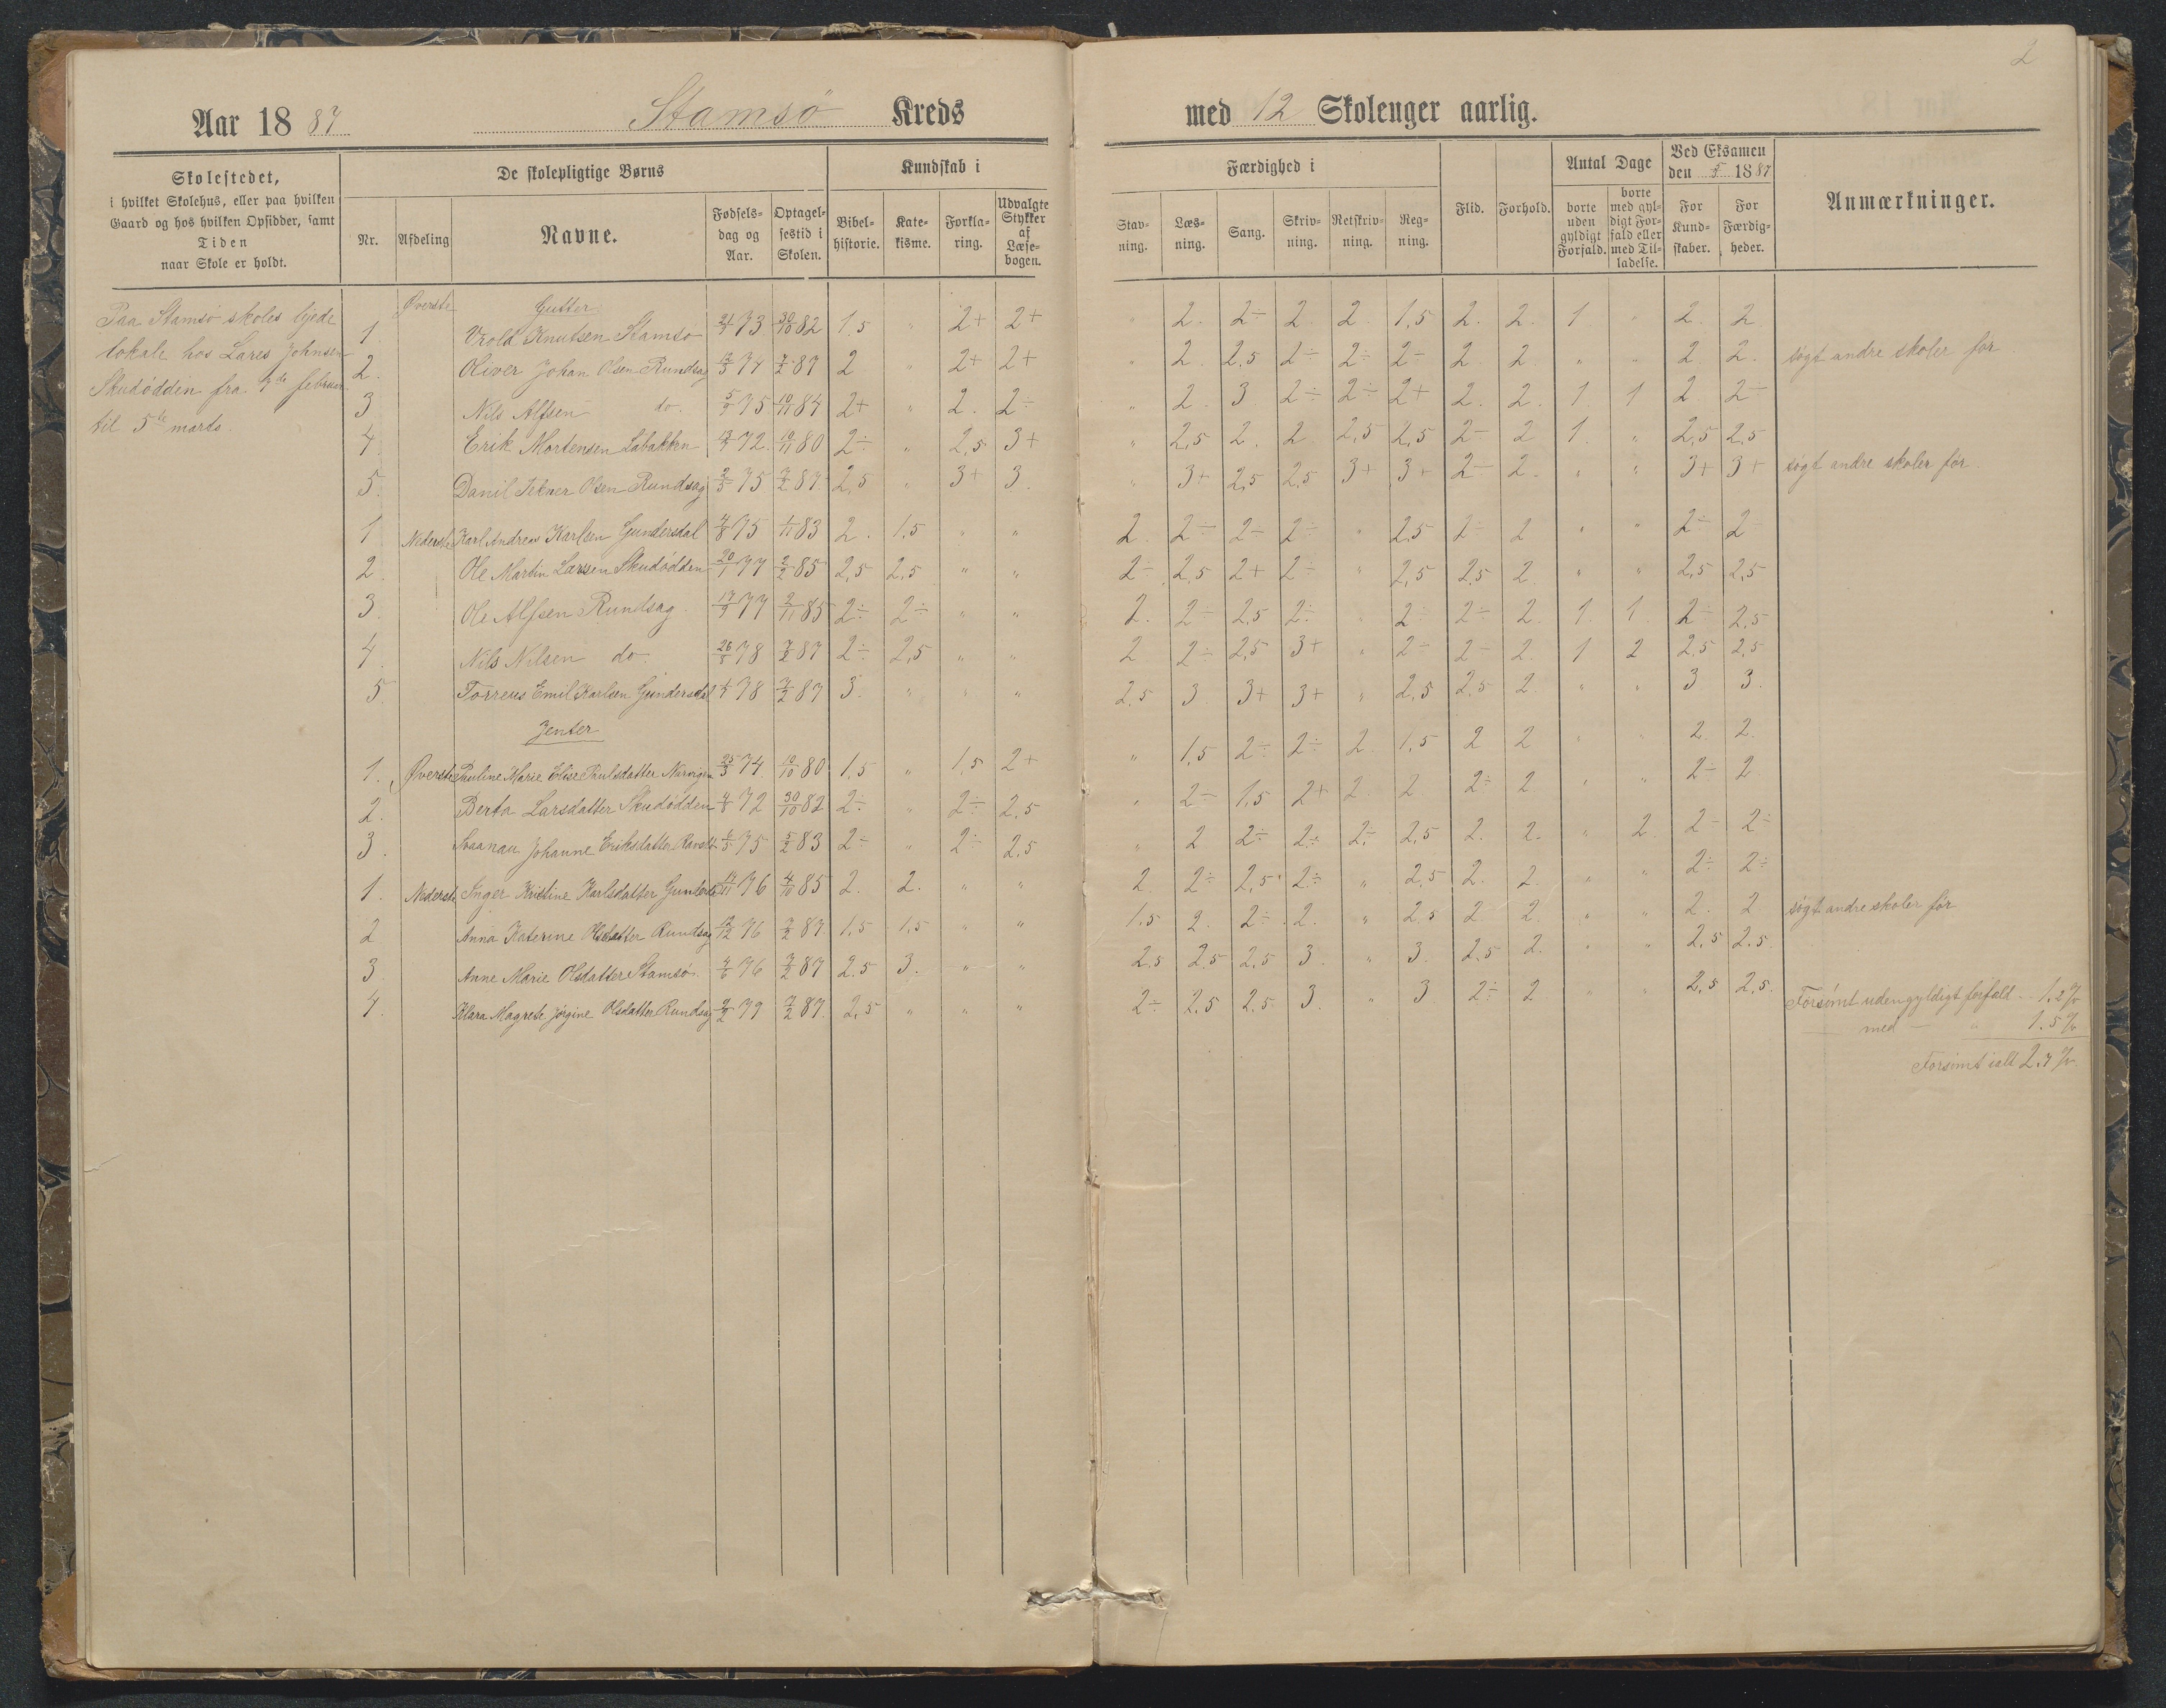 2
Aar 1887 Stamsö Kreds med 12 Skoleuger aarlig.
Skolestedet,
i hvilket Skolehus, eller paa hvilken
Gaard og hos hvilken Opsidder, samt
Tiden
naar Skole er holdt.
De skolepligtige Børns
Nr. Afdeling Navne. Fødselsdag og Aar. Optagelsestid i Skolen.
Kundskab i
Bibelhistorie. Katekisme. Forklaring. Udvalgte Stykker af Læsebogen.
Færdighed i
Stavning. Læsning. Sang. Skrivning. Retskrivning. Regning.
Flid. Forhold.
Antal Dage
borte uden gyldigt Forfald. borte med gyldigt Forfald eller med Tilladelse.
Ved Eksamen
den 5/3 1887
For Kundskaber. For Færdigheder.
Anmærkninger.
Paa Stamsö skoles lejede
lokale hos Lares Johnsen
Skudödden fra 7de februar
til 5te marts.
Øverste Gutter
1. Vrold Knutsen Stamsö 73 30/10 82 1.5 " 2+ 2+ " 2. 2÷ 2. 2. 1,5 2. 2. 1 " 2. 2
2. Oliver Johan Olsen Rundsag 74 7/2 87 2 " 2+ 2+ " 2. 2,5 2÷ 2÷ 2÷ 2 2. " " 2 2. søgt andre skoler før
3 Nils Alfsen do. 75 10/11 84 2+ " 2. 2÷ " 2. 3. 2÷ 2÷ 2+ 2. 2. 1. 1 2 2÷
4 Erik Mortensen Labakken 72. 10/11 80 2÷ " 2,5 3+ " 2,5 2 2. 2,5 2,5 2÷ 2 1. " 2,5 2,5
5. Danil Olsen Rundsag 75 7/2 87. 2,5 " 3+ 3. " 3+ 2,5 2,5 3+ 3+ 2÷ 2. " " 3+ 3+ søgt andre skoler før.
1 Nederste Karl Andreas Karlsen Gundersdal 75 1/11 83 2. 1.5 " " 2. 2÷ 2÷ 2÷ " 2,5 2÷ 2 " " 2÷ 2
2. Ole Martin Larsen Skudödden 20/1 77 2/2 85 2,5 2,5 " " 2÷ 2,5 2+ 2÷ " 2,5 2,5 2 " " 2,5 2,5
3. Ole Alfsen Rundsag. 77 2/11 85 2÷ 2÷ " " 2. 2÷ 2,5 2÷ " 2÷ 2÷ 2. 1. 1. 2÷ 2,5
4. Nils Nilsen do. 78 7/2 87 2÷ 2,5 " " 2 2÷ 2,5 3+ " 2÷ 2÷ 2. 1 2 2,5 2,5
5 Torreus Emil Karlsen Gundersdal 78 7/2 87 3. " " " 2,5 3 3+ 3+ " 2,5 2,5 2. " " 3 3.
Jenter
1. Øverste Pauline Marie Elise Paulsdatter 74. 10/10 80 1,5 " 1,5 2+ " 1,5 2÷ 2÷ 2. 1,5 2 2 " " 2. 2.
2. Berta Larsdatter Skudödden 72 30/10 82 2÷ 2÷ 2,5 " 2÷ 1,5 2+ 2. 2 2÷ 2 " " 2÷ 2
3. Johanne Eriksdatter 75 5/2 83 2÷ " 2÷ 2,5 " 2 2÷ 2÷ 2÷ 2,5 2. 2. " 2. 2÷ 2÷
1. Nederste Inger Kristine Karlsdatter 76 4/10 85 2. 2. " " 2. 2÷ 2,5 2÷ " 2,5 2. 2. " " 2÷ 2÷
2 Anna Katerine Olsdatter Rundsag 76 7/2 87. 1.5 1,5 " " 1.5 2. 2÷ 2. " 2,5 2 2. " " 2. 2 søgt andre skoler før
3. Anne Marie Olsdatter Stamsö. 76 7/2 87 2.5 3. " " 2.5 2.5 2.5 3. " 3. 2.5 2. " " 2,5 2.5.
4. Klara Magrete Jörgine Olsdatter Rundsag 79 7/2 87. 2,5 " " " 2÷ 2.5 2.5 3. " 3 2÷ 2 " " 2,5 2,5.
Forsömt uden gyldigt forfald .. 1.2 %
— med — " 1.5 %
Forsömt ialt 2.7 %